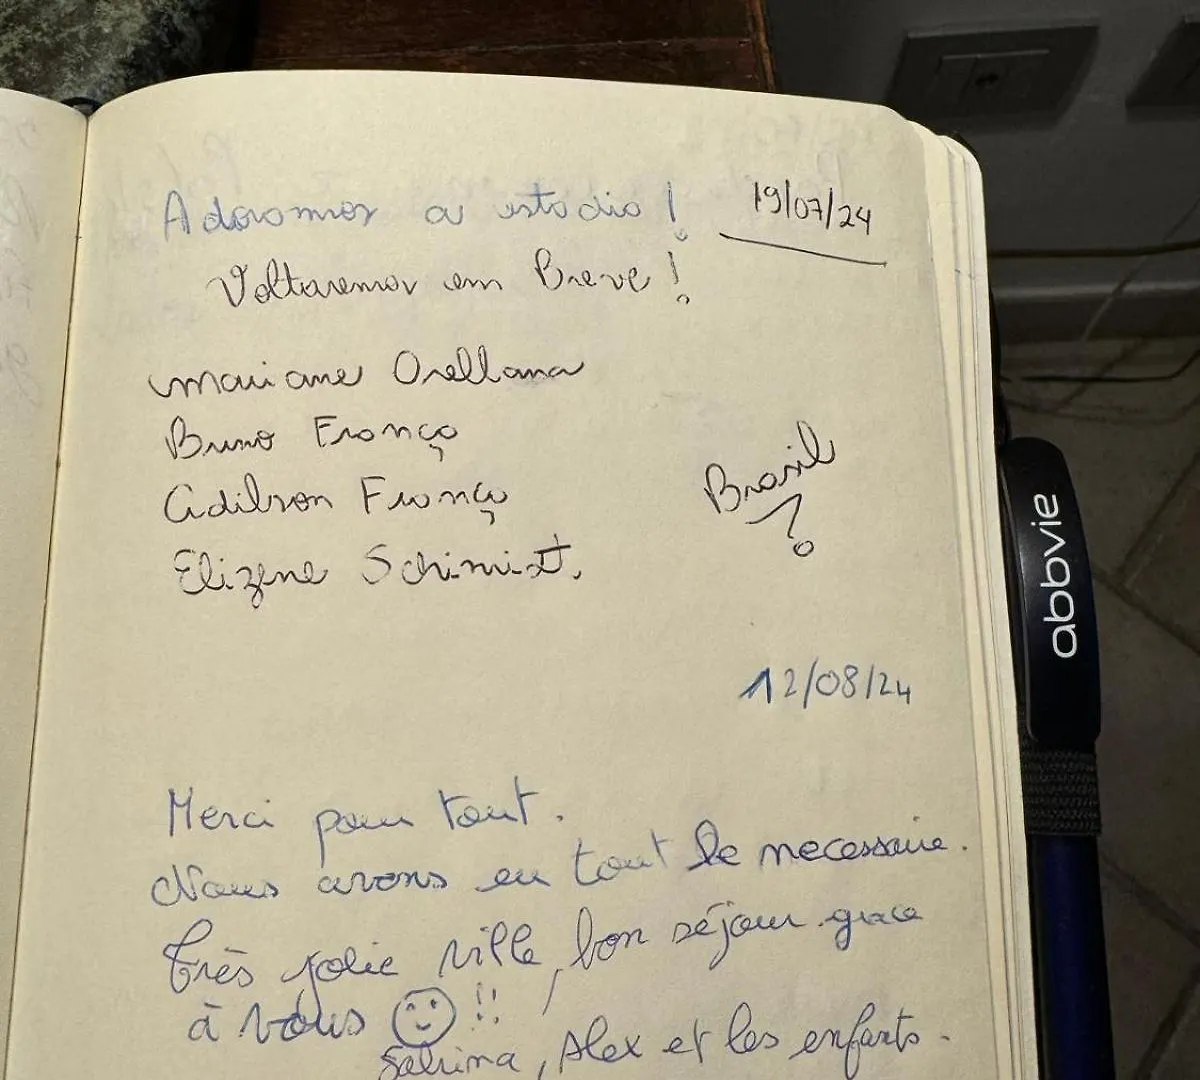 Adoramos a estadia! 19/07/24
Voltaremos em Breve!
Mariane Orellana
Bruno França
Adilson França
Elizene Schimidt.
Brasil
abbvie
12/08/24
Merci pour tout.
Nous avons eu tout le necessaire.
Très jolie ville, bon séjour grace
à vous !!
Sabrina, Alex et les enfants.